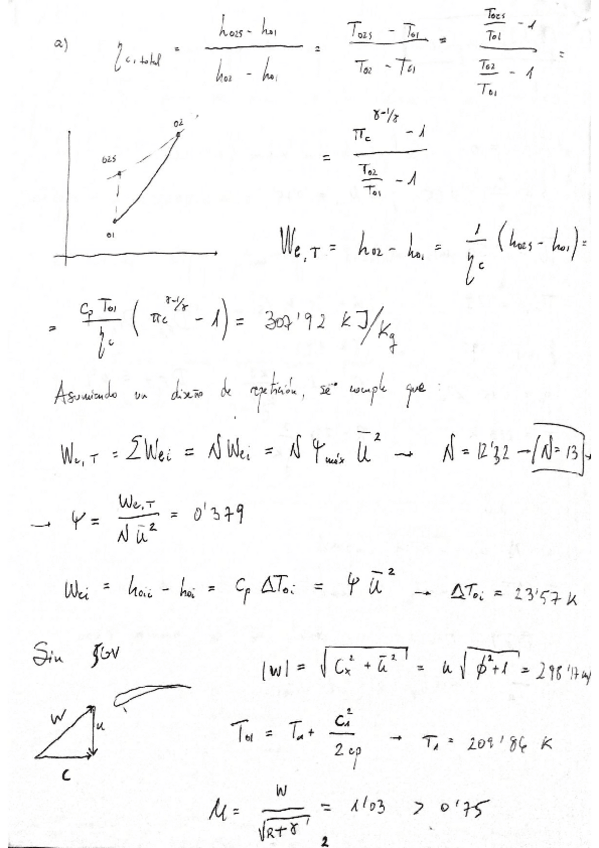 a) η_c,total = (h02s - h01)/(h02 - h01) = (T02s - T01)/(T02 - T01) = (T02s/T01 - 1)/(T02/T01 - 1) =
02
02s
01
= (π_c^(γ-1/γ) - 1)/(T02/T01 - 1)
We,T = h02 - h01 = 1/η_c (h02s - h01) =
= cp T01/η_c (π_c^(γ-1/γ) - 1) = 307'92 KJ/Kg
Asumiendo un diseño de repetición, se cumple que
We,T = ΣWei = N Wei = N ψmáx ū² → N = 12'32 → N = 13 →
→ ψ = We,T/(N ū²) = 0'379
Wei = h0ii - h0i = cp ΔT0i = ψ ū² → ΔT0i = 23'57 K
Sin IGV
|W| = √(Cx² + ū²) = u √(φ² + 1) = 298'17 m/
W
u
C
T01 = T1 + C1²/2cp → T1 = 209'86 K
M = W/√(R+γ) = 1'03 > 0'75
2